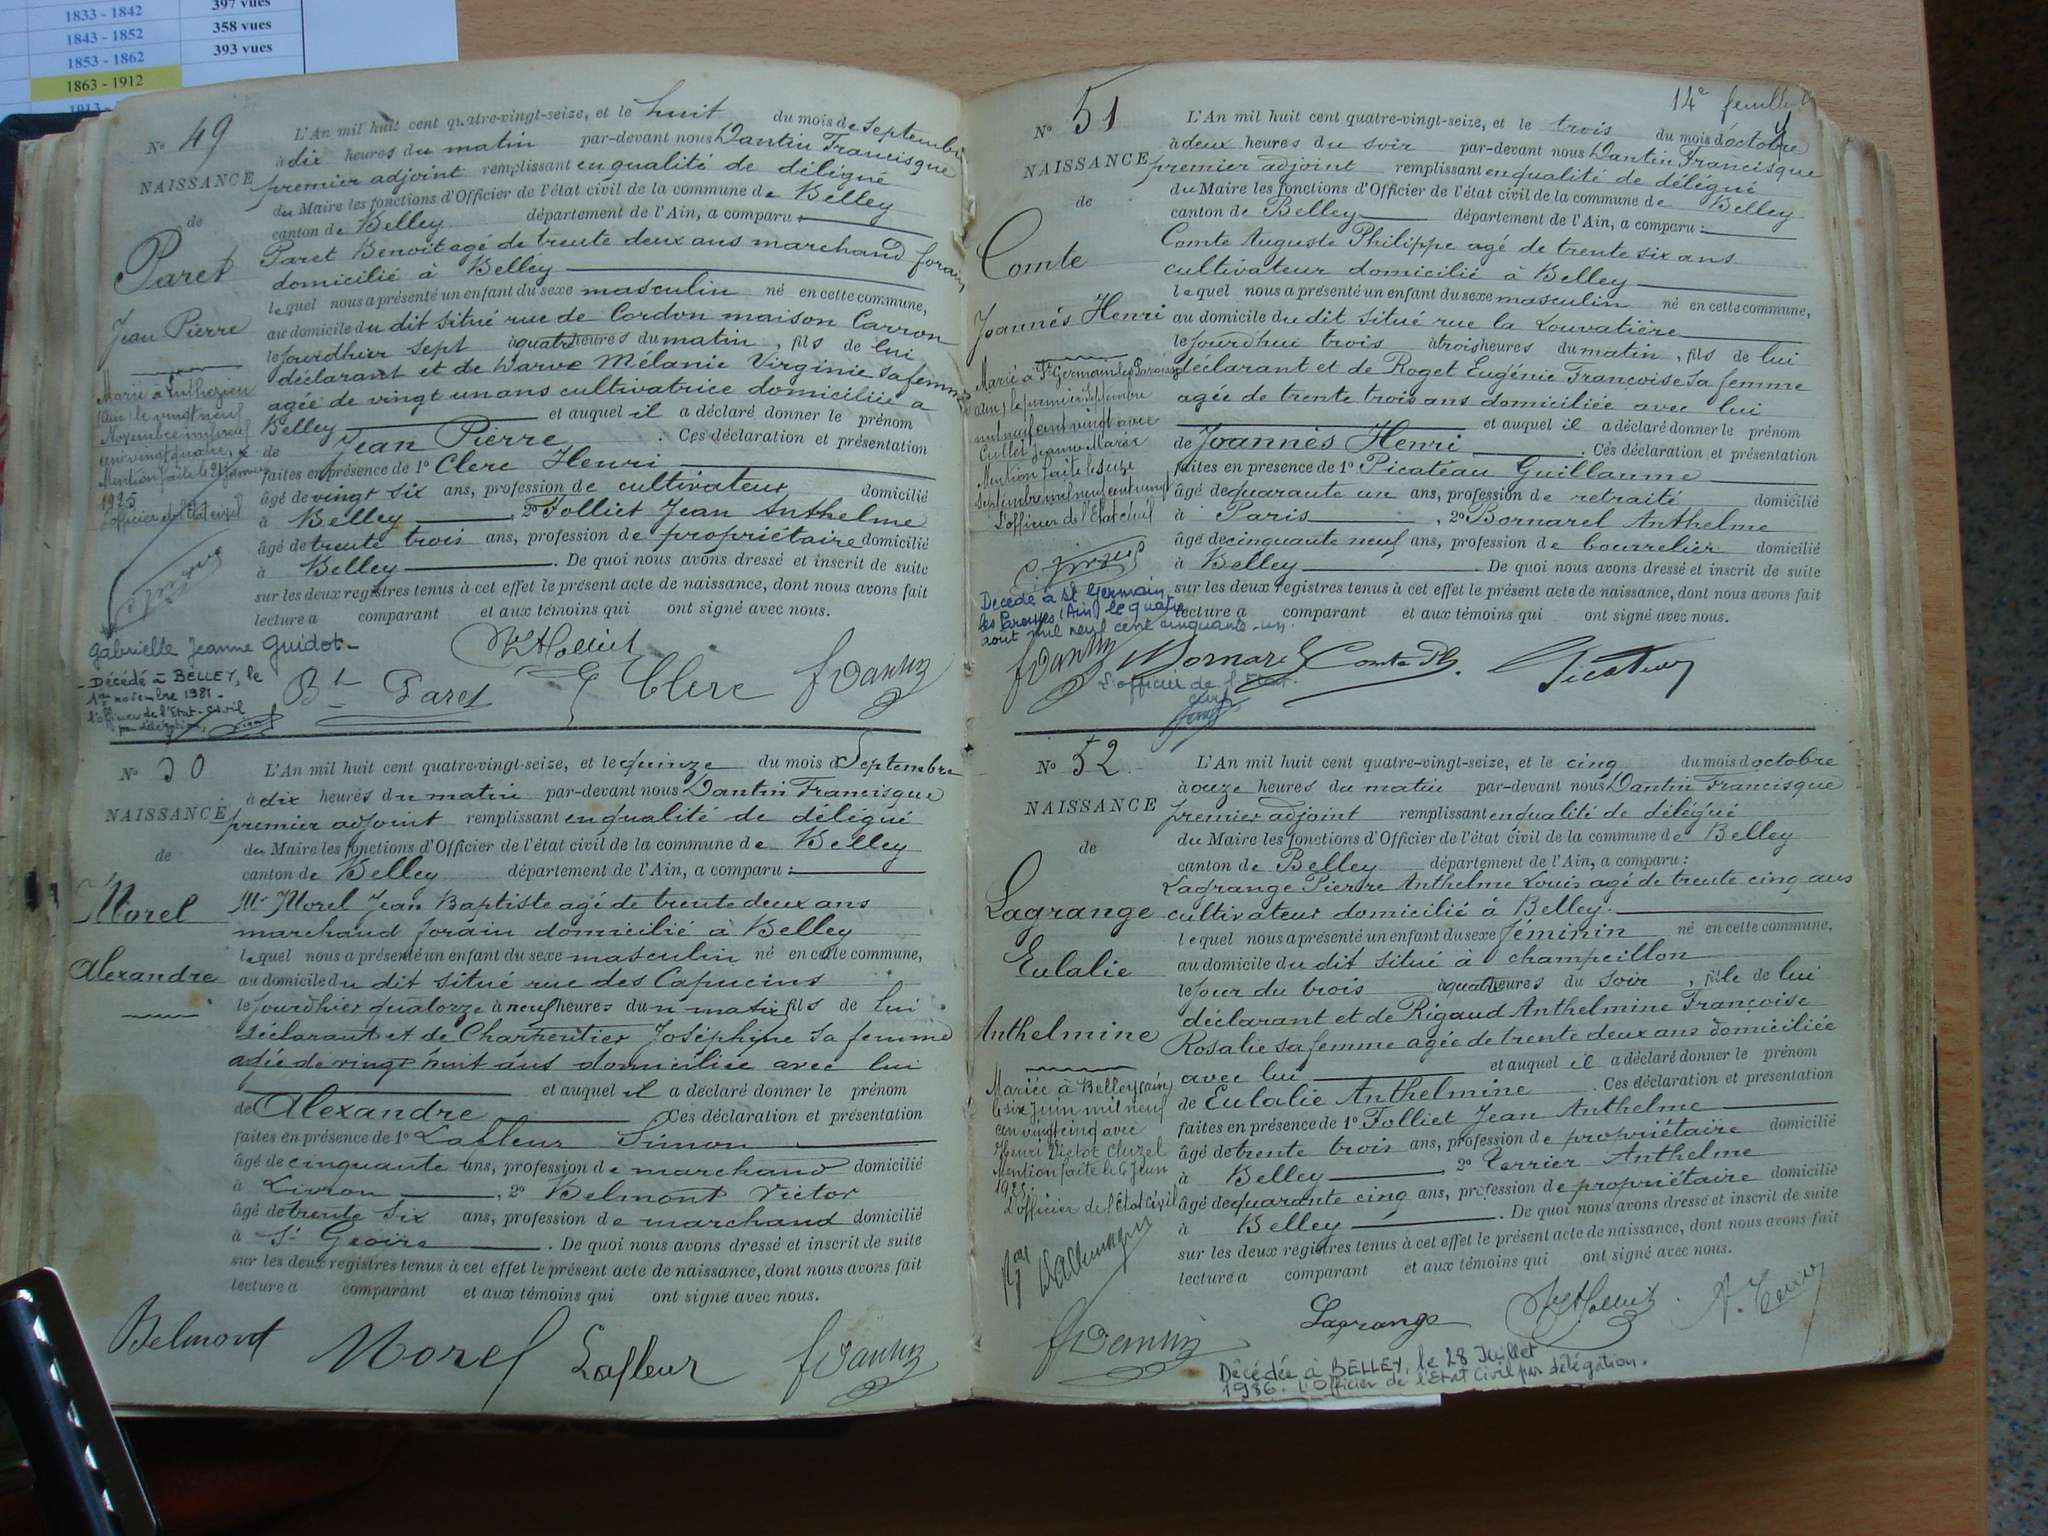 1833 - 1842 397 vues
1843 - 1852 358 vues
1853 - 1862 393 vues
1863 - 1912
N° 49
NAISSANCE
de
Paret
Jean Pierre
L'An mil huit cent quatre-vingt-seize, et le huit du mois de septembre
à dix heures du matin par-devant nous Dantin Francisque
premier adjoint remplissant en qualité de délégué
du Maire les fonctions d'Officier de l'état civil de la commune de Belley
canton de Belley département de l'Ain, a comparu :
Paret Benoit agé de trente deux ans marchand forain
domicilié à Belley
lequel nous a présenté un enfant du sexe masculin né en cette commune,
au domicile du dit situé rue de Cordon maison Carron
le jourdhier sept à quatre heures du matin, fils de lui
déclarant et de Darve Mélanie Virginie sa femme
agée de vingt un ans cultivatrice domiciliée a
Belley et auquel il a déclaré donner le prénom
de Jean Pierre . Ces déclaration et présentation
faites en présence de 1° Clerc Henri
âgé de vingt six ans, profession de cultivateur domicilié
à Belley , 2° Folliet Jean Anthelme
âgé de trente trois ans, profession de propriétaire domicilié
à Belley . De quoi nous avons dressé et inscrit de suite
sur les deux registres tenus à cet effet le présent acte de naissance, dont nous avons fait
lecture a comparant et aux témoins qui ont signé avec nous.
Marié à
(Ain) le vingt neuf
Novembre mil neuf
cent vingt quatre, x
Mention faite le
1925
L'officier de l'Etat civil
Gabrielle Jeanne Guidot -
- Décédé à BELLEY, le
1er novembre 1981 -
L'officier de l'Etat-Civil
par délégation,
Bt Paret Clerc fDantin
N° 50
NAISSANCE
de
Morel
Alexandre
L'An mil huit cent quatre-vingt-seize, et le quinze du mois de Septembre
à dix heures du matin par-devant nous Dantin Francisque
premier adjoint remplissant en qualité de délégué
du Maire les fonctions d'Officier de l'état civil de la commune de Belley
canton de Belley département de l'Ain, a comparu :
Mr Morel Jean Baptiste agé de trente deux ans
marchand forain domicilié à Belley
lequel nous a présenté un enfant du sexe masculin né en cette commune,
au domicile du dit situé rue des Capucins
le jourdhier quatorze à neuf heures du matin fils de lui
déclarant et de Charpentier Joséphine sa femme
agée de vingt huit ans domiciliée avec lui
et auquel il a déclaré donner le prénom
de Alexandre . Ces déclaration et présentation
faites en présence de 1° Lafleur Simon
âgé de cinquante ans, profession de marchand domicilié
à Livron , 2° Belmont Victor
âgé de trente six ans, profession de marchand domicilié
à St Geoire . De quoi nous avons dressé et inscrit de suite
sur les deux registres tenus à cet effet le présent acte de naissance, dont nous avons fait
lecture a comparant et aux témoins qui ont signé avec nous.
Belmont Morel Lafleur fDantin
14e feuillet
N° 51
NAISSANCE
de
Comte
Joannès Henri
L'An mil huit cent quatre-vingt-seize, et le trois du mois d'octobre
à deux heures du soir par-devant nous Dantin Francisque
premier adjoint remplissant en qualité de délégué
du Maire les fonctions d'Officier de l'état civil de la commune de Belley
canton de Belley département de l'Ain, a comparu :
Comte Auguste Philippe agé de trente six ans
cultivateur domicilié à Belley
lequel nous a présenté un enfant du sexe masculin né en cette commune,
au domicile du dit situé rue la Louvatière
le jourd'hui trois à trois heures du matin, fils de lui
déclarant et de Roget Eugénie Françoise sa femme
agée de trente trois ans domiciliée avec lui
et auquel il a déclaré donner le prénom
de Joannès Henri . Ces déclaration et présentation
faites en présence de 1° Picateau Guillaume
âgé de quarante un ans, profession de retraité domicilié
à Paris , 2° Bornarel Anthelme
âgé de cinquante neuf ans, profession de bourrelier domicilié
à Belley . De quoi nous avons dressé et inscrit de suite
sur les deux registres tenus à cet effet le présent acte de naissance, dont nous avons fait
lecture a comparant et aux témoins qui ont signé avec nous.
Marié à St Germain les Paroisses
(Ain) le premier Septembre
mil neuf cent vingt avec
Cullet Jeanne Marie
Mention faite le seize
Septembre mil neuf cent vingt
L'officier de l'Etat civil
Décédé à St Germain
les Paroisses (Ain) le quatre
août mil neuf cent cinquante-un.
L'officier de l'Etat
civil
fDantin Bornarel Comte Ph Picateau
N° 52
NAISSANCE
de
Lagrange
Eulalie
Anthelmine
L'An mil huit cent quatre-vingt-seize, et le cinq du mois d'octobre
à onze heures du matin par-devant nous Dantin Francisque
premier adjoint remplissant en qualité de délégué
du Maire les fonctions d'Officier de l'état civil de la commune de Belley
canton de Belley département de l'Ain, a comparu :
Lagrange Pierre Anthelme Louis agé de trente cinq ans
cultivateur domicilié à Belley.
lequel nous a présenté un enfant du sexe féminin né en cette commune,
au domicile du dit situé à champeillon
le jour du trois à quatre heures du soir, fille de lui
déclarant et de Rigaud Anthelmine Françoise
Rosalie sa femme agée de trente deux ans domiciliée
avec lui et auquel il a déclaré donner le prénom
de Eulalie Anthelmine . Ces déclaration et présentation
faites en présence de 1° Folliet Jean Anthelme
âgé de trente trois ans, profession de propriétaire domicilié
à Belley 2° Terrier Anthelme
âgé de quarante cinq ans, profession de propriétaire domicilié
à Belley . De quoi nous avons dressé et inscrit de suite
sur les deux registres tenus à cet effet le présent acte de naissance, dont nous avons fait
lecture a comparant et aux témoins qui ont signé avec nous.
Mariée à Belley (ain)
le six Juin mil neuf
cent vingt cinq avec
Henri Victor Cluzel
Mention faite le 6 Juin
L'officier de l'Etat Civil
fDantin Lagrange
Décédée à BELLEY, le 28 Juillet
1986. L'Officier de l'Etat Civil par délégation.